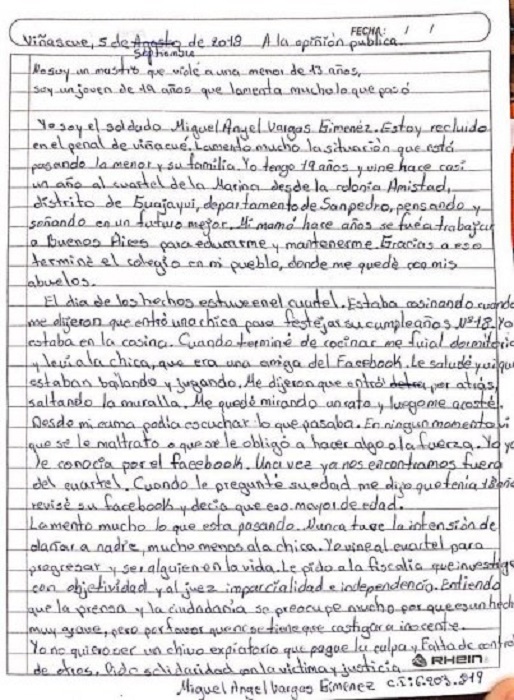 FECHA: / /
Viñascue, 5 de Agosto de 2019 A la opinión pública.
Septiembre
No soy un mostro que violé a una menor de 13 años,
soy un joven de 19 años que lamenta mucho lo que pasó
Yo soy el soldado Miguel Angel Vargas Gimenéz. Estoy recluido
en el penal de viñacué. Lamento mucho la situación que está
pasando la menor y su familia. Yo tengo 19 años y vine hace casi
un año al cuartel de la Marina desde la colonia Amistad,
distrito de Guajayui, departamento de Sanpedro, pensando y
soñando en un futuro mejor. Mi mamá hace años se fué a trabajar
a Buenos Aires para educarme y mantenerme. Gracias a eso
terminé el colegio en mi pueblo, donde me quedé con mis
abuelos.
El día de los hechos estuve en el cuartel. Estaba cosinando cuando
me dijeron que entró una chica para festejar su cumpleaños Nº 18. Yo
estaba en la cosina. Cuando terminé de cocinar me fui al dormitorio
y leví a la chica, que era una amiga del Facebook. Le saludé y vi que
estaban bailando y jugando. Me dijeron que entró por atrás,
saltando la muralla. Me quedé mirando un rato y luego me acosté.
Desde mi cama podía escuchar lo que pasaba. En ningun momento vi
que se le maltrato o que se le obligó a hacer algo a la fuerza. Yo ya
le conocía por el facebook. Una vez ya nos encontramos fuera
del cuartel. Cuando le pregunté su edad me dijo que tenía 18 años
revisé su facebook y decía que era mayor de edad.
Lamento mucho lo que esta pasando. Nunca tuve la intensión de
dañar a nadie, mucho menos a la chica. Yo vine al cuartel para
progresar y ser alguien en la vida. Le pido a la fiscalía que investigue
con objetividad y al juez imparcialidad e independencia. Entiendo
que la prensa y la ciudadanía se preocupe mucho porque es un hecho
muy grave, pero por favor que no se tiene que castigar a inocente.
Yo no quiero ser un chivo expiatorio que pague la culpa y falta de control
de otros. Pido solidaridad con la víctima y justicia
RHEIN
Miguel Angel Vargas Gimenez C.I: 6.203.219